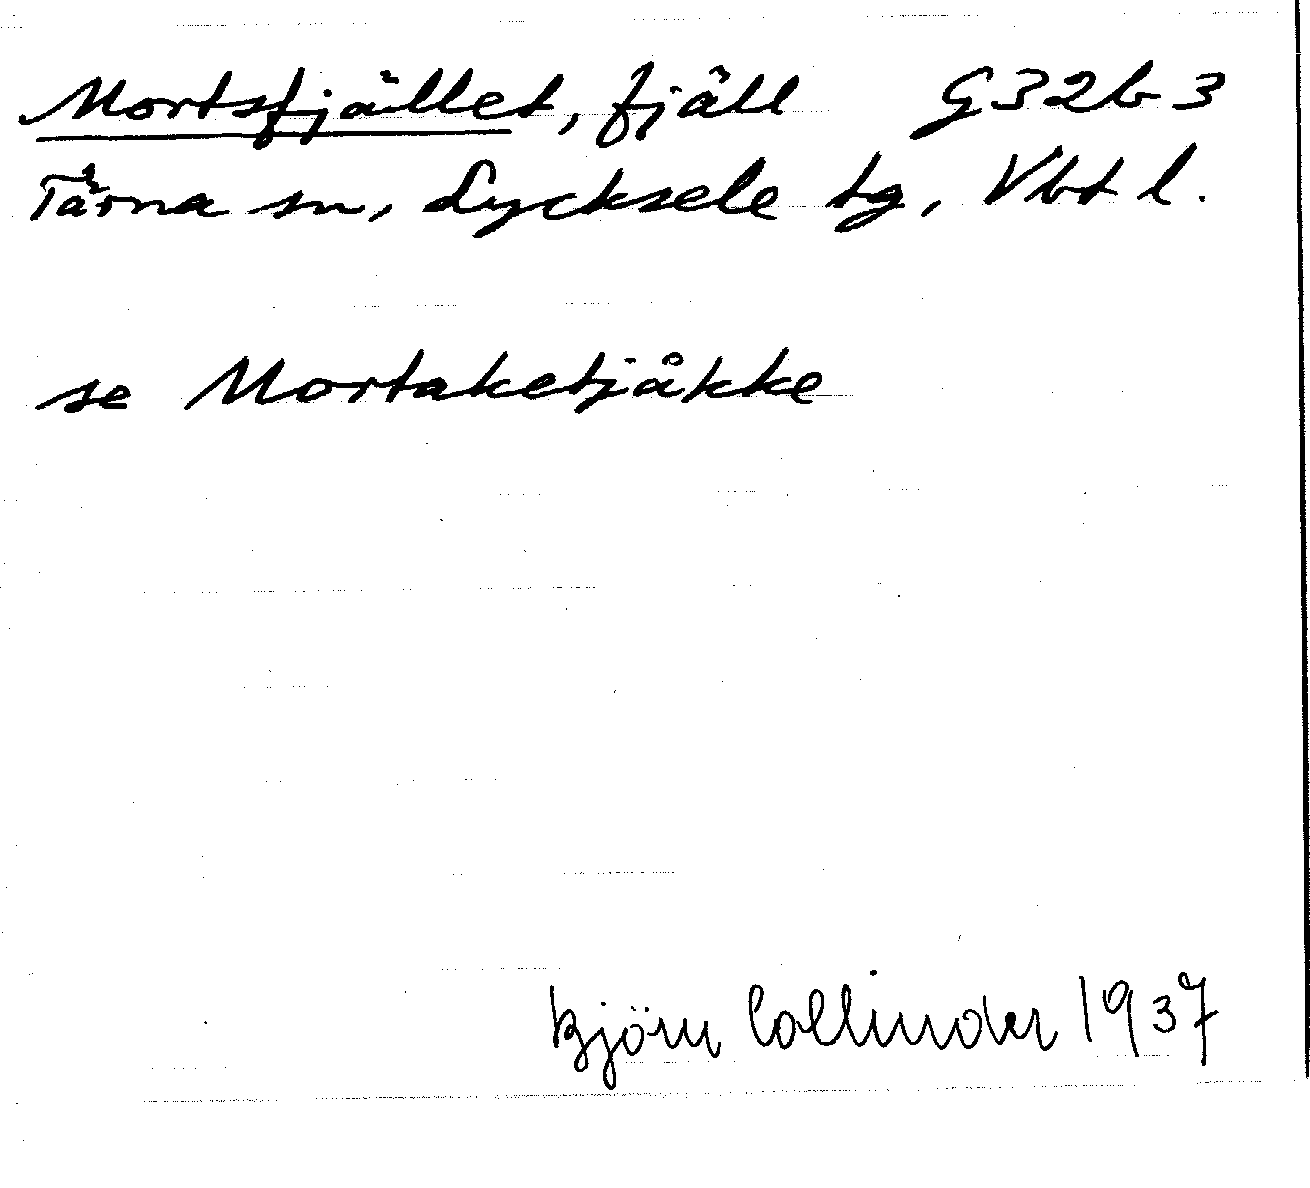 Mortsfjället, fjäll G32b3
Tärna sn, Lycksele tg, Vbt l.
se Mortaketjåkke
Björn Collinder 1937